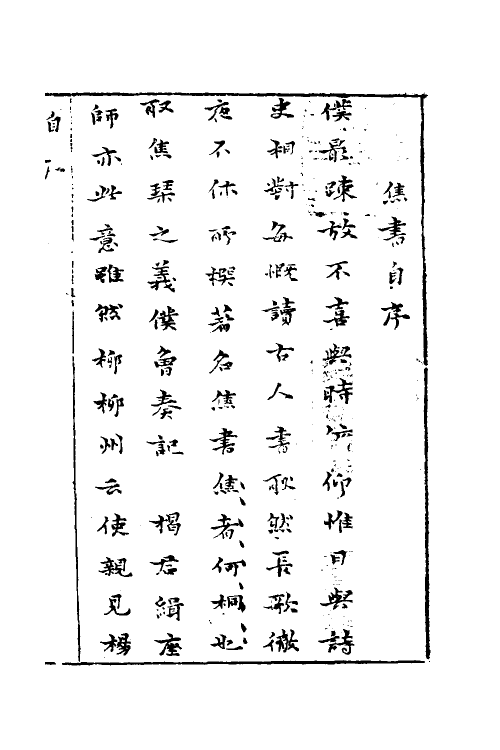 焦書自序
僕最疎放不喜與時俯仰惟日與詩
史相對每慨讀古人書耿然長歌徹
夜不休所撰著名焦書焦者何桐也
取焦琹之義僕曾奏記 揭君緝座
師亦此意雖然柳柳州云使親見楊
自序